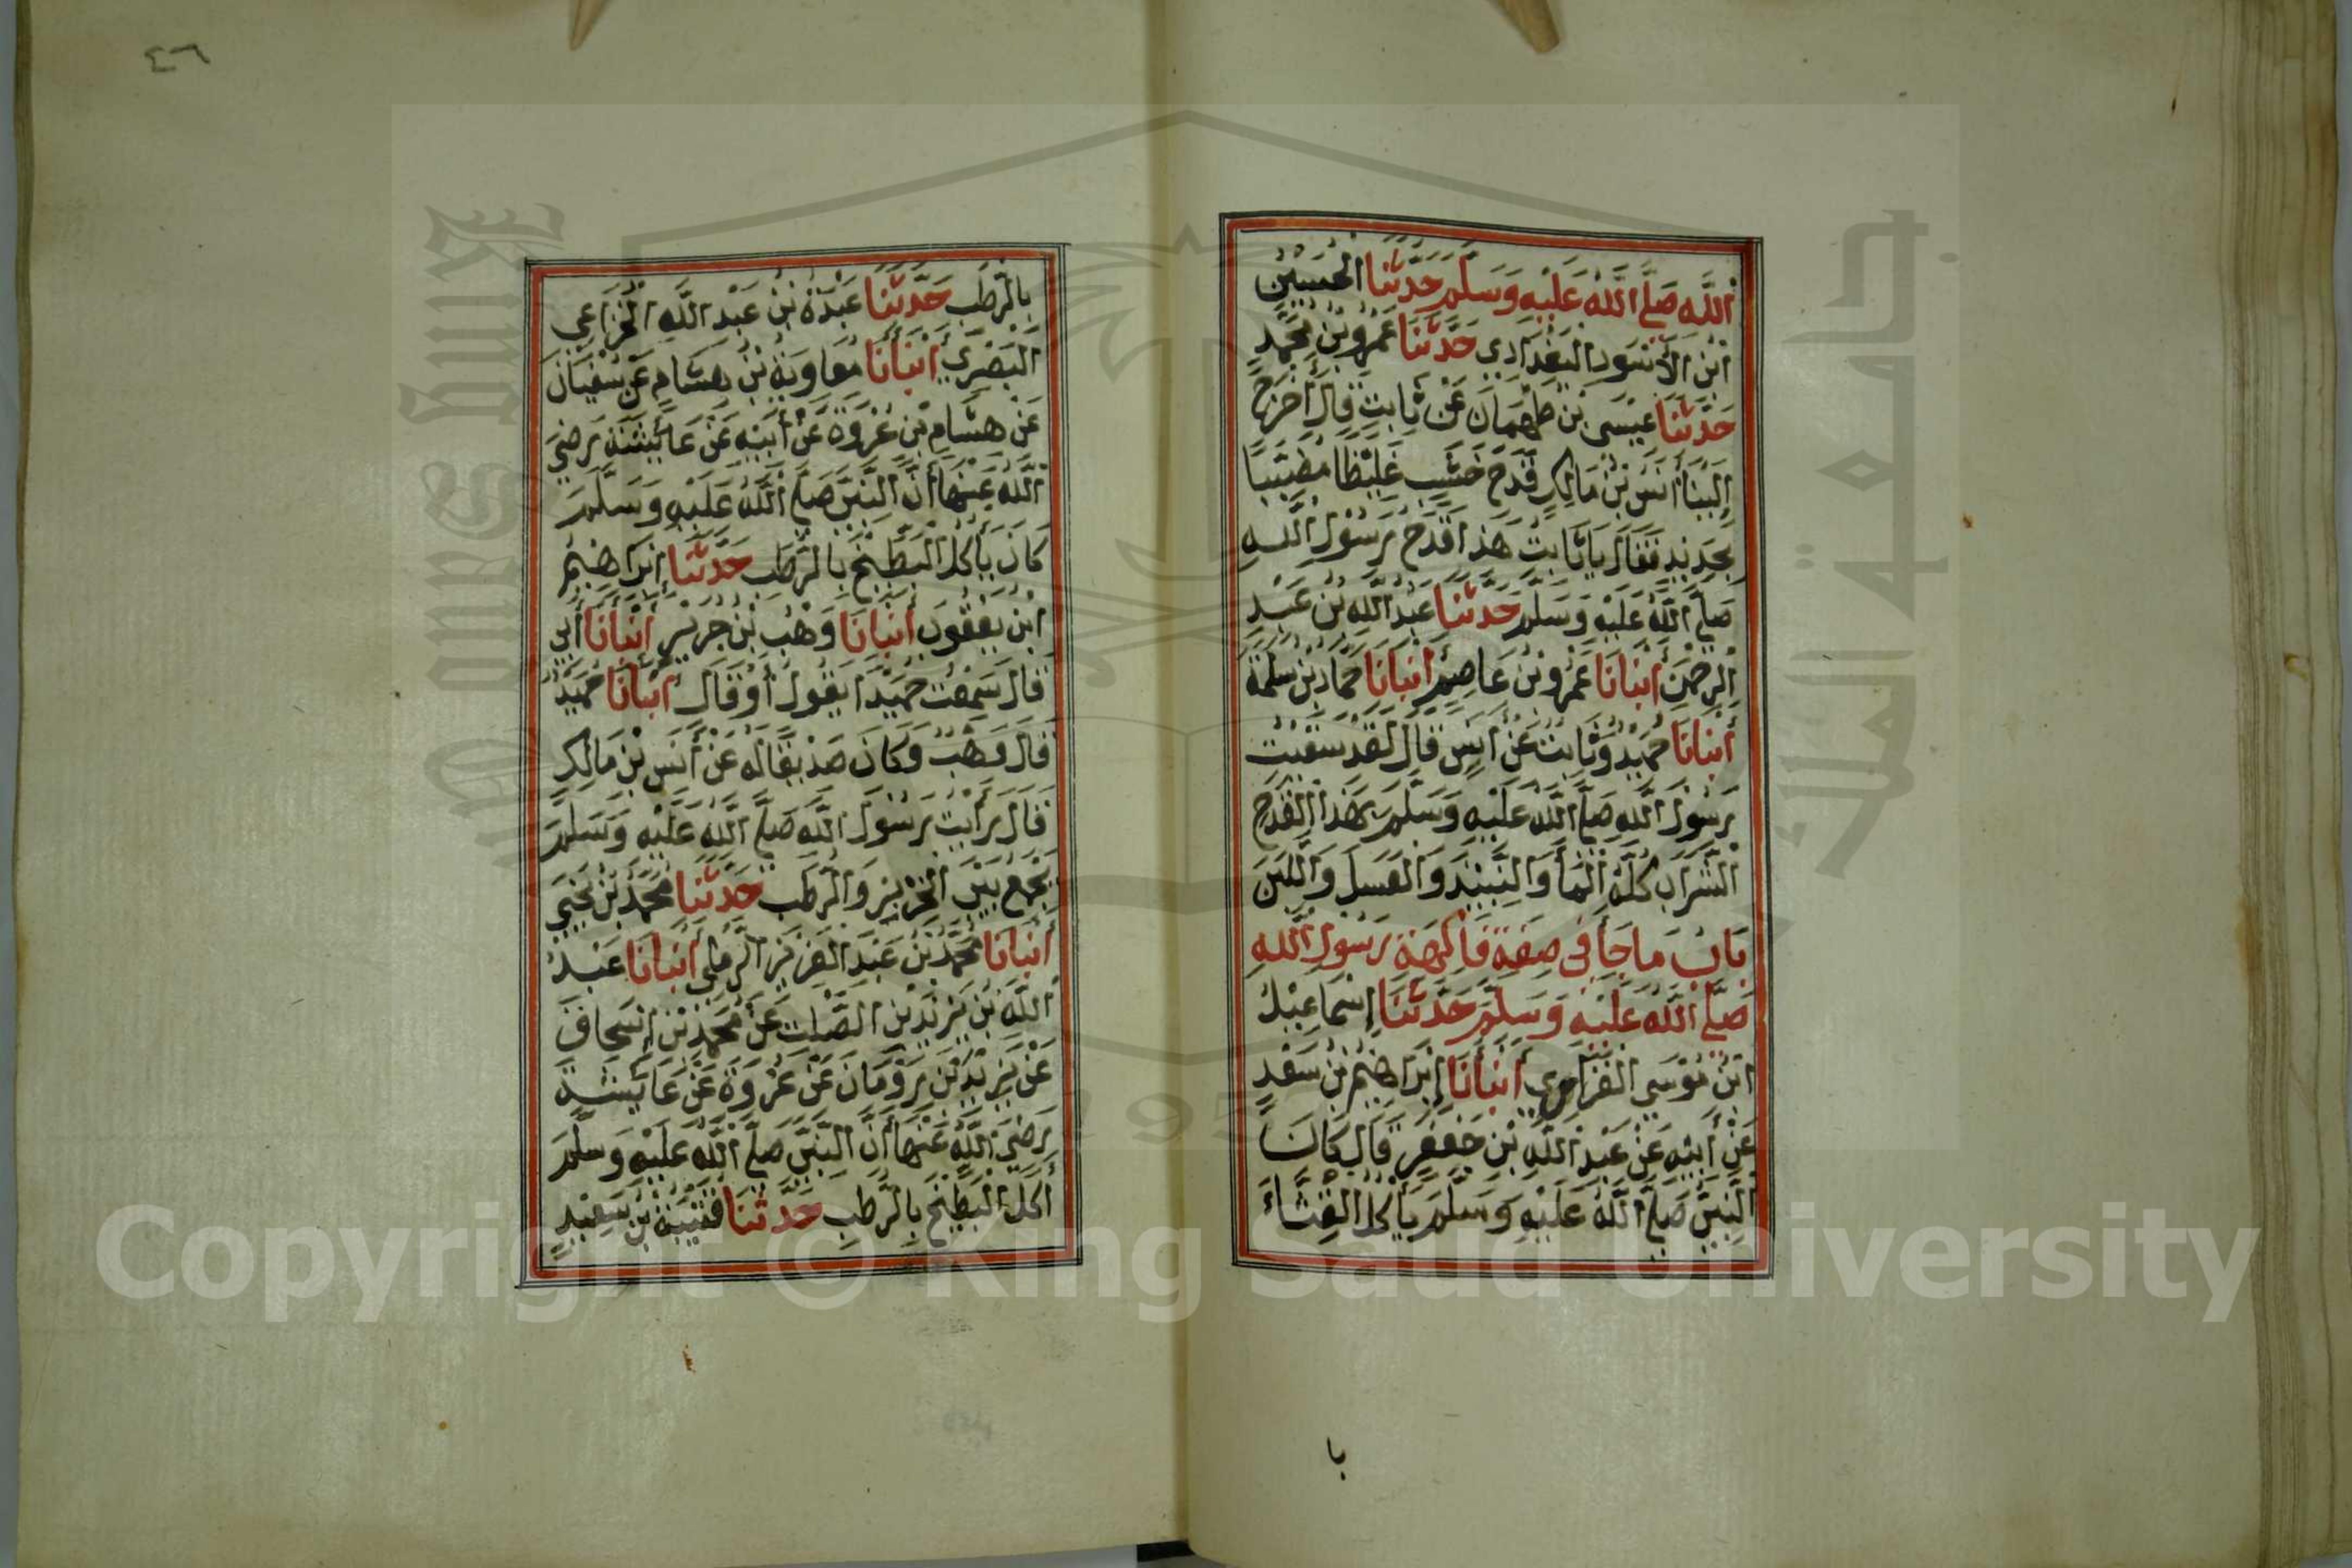 اللَّهِ صَلَّى اللَّهُ عَلَيْهِ وَسَلَّمَ حَدَّثَنَا الْحُسَيْنُ
ابْنُ الْأَسْوَدِ الْبَغْدَادِي حَدَّثَنَا عَمْرُو بْنُ مُحَمَّدٍ
حَدَّثَنَا عِيْسَى بْنُ طَهْمَانَ عَنْ ثَابِتٍ قَالَ أَخْرَجَ
إِلَيْنَا أَنَسُ بْنُ مَالِكٍ قَدَحَ خَشَبٍ غَلِيْظًا مُضَبَّبًا
بِحَدِيْدٍ فَقَالَ يَا ثَابِتُ هَذَا قَدَحُ رَسُوْلِ اللَّهِ
صَلَّى اللَّهُ عَلَيْهِ وَسَلَّمَ حَدَّثَنَا عَبْدُ اللَّهِ بْنُ عَبْدِ
الرَّحْمَنِ أَنْبَانَا عَمْرُو بْنُ عَاصِمٍ أَنْبَانَا حَمَّادُ بْنُ سَلَمَةَ
أَنْبَانَا حُمَيْدٌ وَثَابِتٌ عَنْ أَنَسٍ قَالَ لَقَدْ سَقَيْتُ
رَسُوْلَ اللَّهِ صَلَّى اللَّهُ عَلَيْهِ وَسَلَّمَ بِهَذَا الْقَدَحِ
الشَّرَابَ كُلَّهُ الْمَأَ وَالنَّبِيْذَ وَالْعَسَلَ وَاللَّبَنَ
بَابُ مَا جَأَ فِي صِفَةِ فَاكِهَةِ رَسُوْلِ اللَّهِ
صَلَّى اللَّهُ عَلَيْهِ وَسَلَّمَ حَدَّثَنَا إِسْمَاعِيْلُ
ابْنُ مُوْسَى الْفَزَارِي أَنْبَأَنَا إِبْرَاهِيْمُ بْنُ سَعْدٍ
عَنْ أَبِيْهِ عَنْ عَبْدِ اللَّهِ بْنِ جَعْفَرٍ قَالَ كَانَ
النَّبِيُّ صَلَّى اللَّهُ عَلَيْهِ وَسَلَّمَ يَأْكُلُ الْقِثَّاءَ
با
٤٦
بِالرُّطَبِ حَدَّثَنَا عَبْدَةُ بْنُ عَبْدِ اللَّهِ الْخُزَاعِي
الْبَصْرِي أَنْبَأَنَا مُعَاوِيَةُ بْنُ هِشَامٍ عَنْ سُفْيَانَ
عَنْ هِشَامِ بْنِ عُرْوَةَ عَنْ أَبِيْهِ عَنْ عَائِيشَةَ رَضِيَ
اللَّهُ عَنْهَا أَنَّ النَّبِيَّ صَلَّى اللَّهُ عَلَيْهِ وَسَلَّمَ
كَانَ يَأْكُلُ الْبَطِّيْخَ بِالرُّطَبِ حَدَّثَنَا إِبْرَاهِيْمُ
ابْنُ يَعْقُوْبَ أَنْبَانَا وَهْبُ بْنُ جَرِيْرٍ أَنْبَأَنَا أَبِي
قَالَ سَمِعْتُ حُمَيْدًا يَقُوْلُ أَوْ قَالَ أَنْبَأَنَا حُمَيْدٌ
قَالَ وَهْبٌ وَكَانَ صَدِيْقًا لَهُ عَنْ أَنَسِ بْنِ مَالِكٍ
قَالَ رَأَيْتُ رَسُوْلَ اللَّهِ صَلَّى اللَّهُ عَلَيْهِ وَسَلَّمَ
يَجْمَعُ بَيْنَ الْخِرْبِزِ وَالرُّطَبِ حَدَّثَنَا مُحَمَّدُ بْنُ يَحْيَى
أَنْبَانَا مُحَمَّدُ بْنُ عَبْدِ الْعَزِيْزِ الرَّمْلِي أَنْبَانَا عَبْدُ
اللَّهِ بْنُ يَزِيْدَ بْنِ الصَّلْتِ عَنْ مُحَمَّدِ بْنِ إِسْحَاقَ
عَنْ يَزِيْدَ بْنِ رَوْمَانَ عَنْ عُرْوَةَ عَنْ عَائِيشَةَ
رَضِيَ اللَّهُ عَنْهَا أَنَّ النَّبِيَّ صَلَّى اللَّهُ عَلَيْهِ وَسَلَّمَ
أَكَلَ الْبَطِّيْخَ بِالرُّطَبِ حَدَّثَنَا قُتَيْبَةُ بْنُ سَعِيْدٍ
King Saud University
جامعة الملك
1957
Copyright © King Saud University